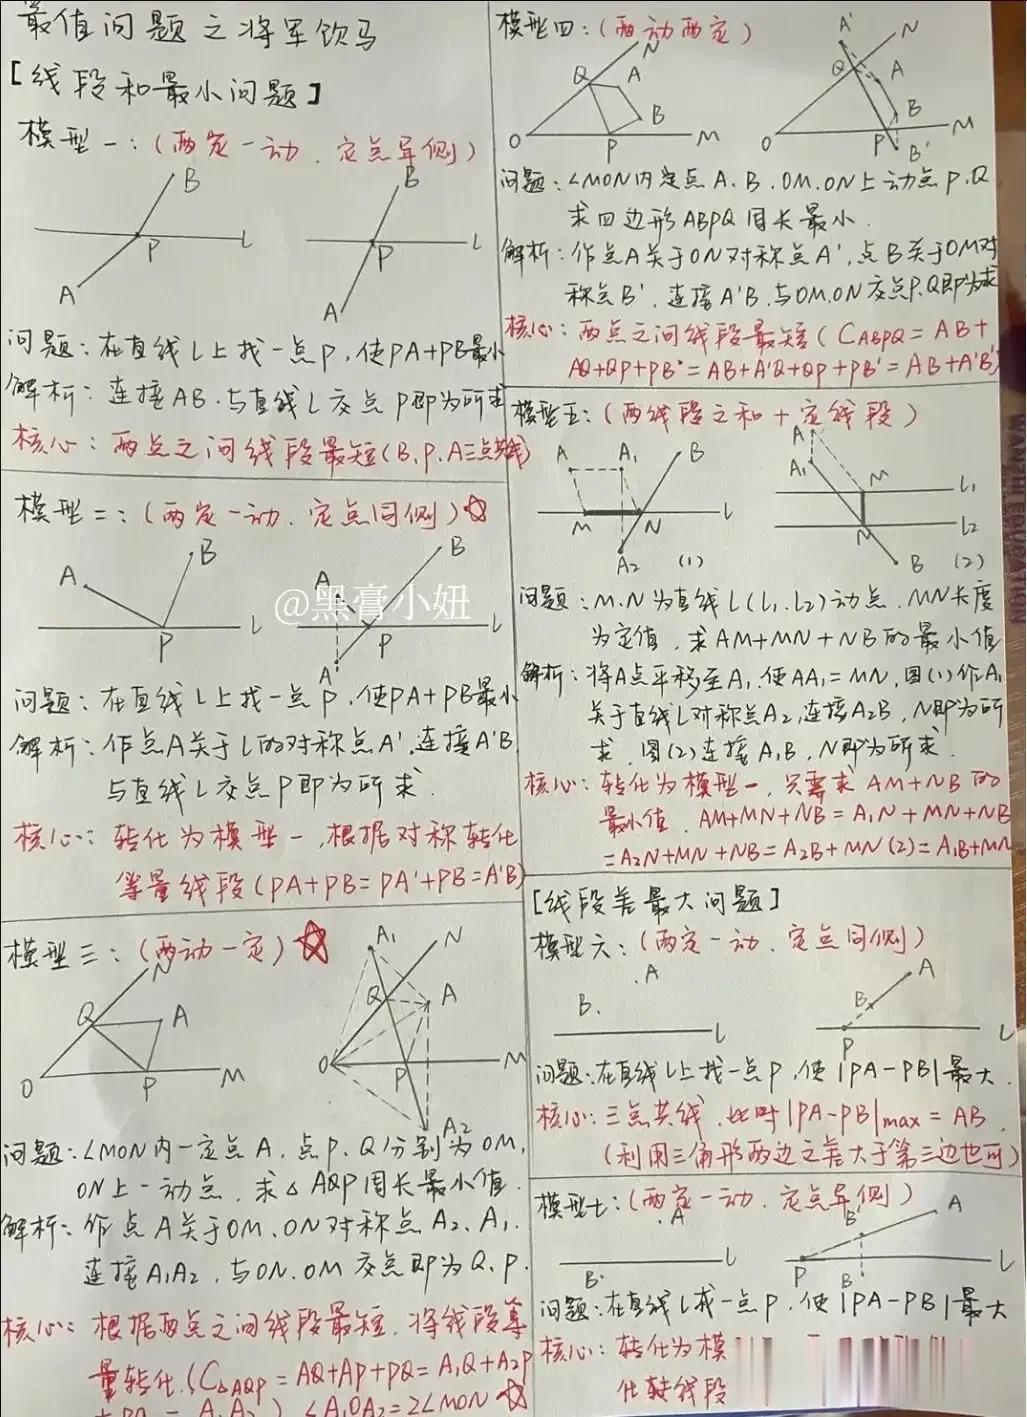 最值问题之将军饮马
[线段和最小问题]
模型一:(两定一动.定点异侧)
B
P
L
A
B
P
L
A
问题:在直线L上找一点P,使PA+PB最小
解析:连接AB.与直线L交点P即为所求
核心:两点之间线段最短(B.P.A三点共线)
模型二:(两定一动.定点同侧)☆
A
B
P
L
A
B
P
L
A'
@黑膏小妞
问题:在直线L上找一点P,使PA+PB最小
解析:作点A关于L的对称点A',连接A'B,
与直线L交点P即为所求.
核心:转化为模型一,根据对称转化
等量线段(PA+PB=PA'+PB=A'B)
模型三:(两动一定)☆
N
Q
A
O
P
M
A₁
N
Q
A
O
P
M
A₂
问题:∠MON内一定点A.点P.Q分别为OM,
ON上一动点.求△AQP周长最小值.
解析:作点A关于OM.ON对称点A₂、A₁.
连接A₁A₂,与ON.OM交点即为Q.P.
核心:根据两点之间线段最短.将线段等
量转化.(C△AQP=AQ+AP+PQ=A₁Q+A₂P
+PQ=A₁A₂)∠A₁OA₂=2∠MON☆
模型四:(两动两定)
N
Q
A
B
O
P
M
A'
N
Q
A
B
O
P
M
B'
问题:∠MON内定点A.B.OM.ON上动点P.Q
求四边形ABPQ周长最小.
解析:作点A关于ON对称点A',点B关于OM对
称点B'.连接A'B.与OM.ON交点P.Q即为求
核心:两点之间线段最短(CABPQ=AB+
AQ+QP+PB=AB+A'Q+QP+PB'=AB+A'B')
模型五:(两线段之和+定线段)
A
A₁
B
M
N
L
A₂
(1)
A
A₁
M
L₁
L₂
N
B
(2)
问题:M.N为直线L(L₁.L₂)动点.MN长度
为定值.求AM+MN+NB的最小值
解析:将A点平移至A₁.使AA₁=MN.图(1)作A₁
关于直线L对称点A₂,连接A₂B,N即为所
求.图(2)连接A₁B,N即为所求.
核心:转化为模型一,只需求AM+NB的
最小值.AM+MN+NB=A₁N+MN+NB
=A₂N+MN+NB=A₂B+MN(2)=A₁B+MN
[线段差最大问题]
模型六:(两定一动.定点同侧)
A
B
L
A
B
P
L
问题:在直线L上找一点P,使|PA-PB|最大.
核心:三点共线.此时|PA-PB|max=AB.
(利用三角形两边之差大于第三边也可)
模型七:(两定一动.定点异侧)
A
L
B
A
B'
P
B
L
问题:在直线L找一点P,使|PA-PB|最大
核心:转化为模
化转线段